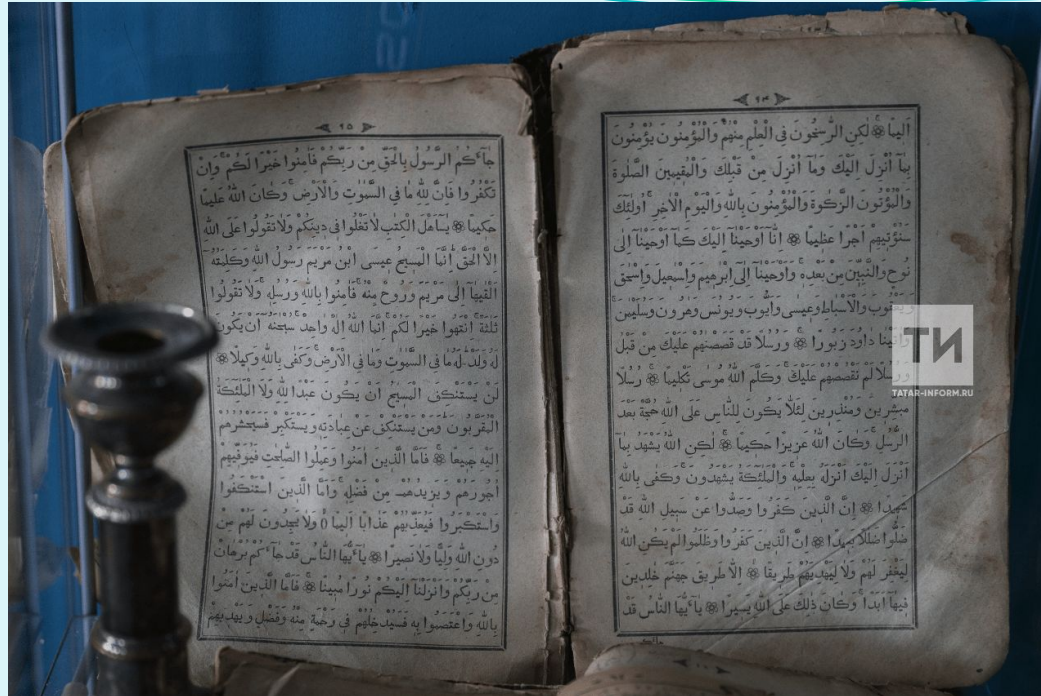 ٩٤
اَلِيمًا ۞ لٰكِنِ الرَّاسِخُونَ فِى الْعِلْمِ مِنْهُمْ وَالْمُؤْمِنُونَ يُؤْمِنُونَ
بِمَآ اُنْزِلَ اِلَيْكَ وَمَآ اُنْزِلَ مِنْ قَبْلِكَ وَالْمُقِيمِينَ الصَّلٰوةَ
وَالْمُؤْتُونَ الزَّكٰوةَ وَالْمُؤْمِنُونَ بِاللّٰهِ وَالْيَوْمِ الْاٰخِرِ اُولٰٓئِكَ
سَنُؤْتِيهِمْ اَجْرًا عَظِيمًا ۞ اِنَّآ اَوْحَيْنَآ اِلَيْكَ كَمَآ اَوْحَيْنَآ اِلٰى
نُوحٍ وَالنَّبِيّٖنَ مِنْ بَعْدِهٖ وَاَوْحَيْنَآ اِلٰٓى اِبْرٰهِيمَ وَاِسْمٰعِيلَ وَاِسْحٰقَ
وَيَعْقُوبَ وَالْاَسْبَاطِ وَعِيسٰى وَاَيُّوبَ وَيُونُسَ وَهٰرُونَ وَسُلَيْمٰنَ
وَاٰتَيْنَا دَاوُدَ زَبُورًا ۞ وَرُسُلًا قَدْ قَصَصْنٰهُمْ عَلَيْكَ مِنْ قَبْلُ
وَرُسُلًا لَمْ نَقْصُصْهُمْ عَلَيْكَ وَكَلَّمَ اللّٰهُ مُوسٰى تَكْلِيمًا ۞ رُسُلًا
مُبَشِّرِينَ وَمُنْذِرِينَ لِئَلَّا يَكُونَ لِلنَّاسِ عَلَى اللّٰهِ حُجَّةٌ بَعْدَ
الرُّسُلِ وَكَانَ اللّٰهُ عَزِيزًا حَكِيمًا ۞ لٰكِنِ اللّٰهُ يَشْهَدُ بِمَآ
اَنْزَلَ اِلَيْكَ اَنْزَلَهُ بِعِلْمِهٖ وَالْمَلٰٓئِكَةُ يَشْهَدُونَ وَكَفٰى بِاللّٰهِ
شَهِيدًا ۞ اِنَّ الَّذِينَ كَفَرُوا وَصَدُّوا عَنْ سَبِيلِ اللّٰهِ قَدْ
ضَلُّوا ضَلٰلًا بَعِيدًا ۞ اِنَّ الَّذِينَ كَفَرُوا وَظَلَمُوا لَمْ يَكُنِ اللّٰهُ
لِيَغْفِرَ لَهُمْ وَلَا لِيَهْدِيَهُمْ طَرِيقًا ۞ اِلَّا طَرِيقَ جَهَنَّمَ خٰلِدِينَ
فِيهَآ اَبَدًا وَكَانَ ذٰلِكَ عَلَى اللّٰهِ يَسِيرًا ۞ يَآ اَيُّهَا النَّاسُ قَدْ
٩٥
جَآءَكُمُ الرَّسُولُ بِالْحَقِّ مِنْ رَبِّكُمْ فَاٰمِنُوا خَيْرًا لَكُمْ وَاِنْ
تَكْفُرُوا فَاِنَّ لِلّٰهِ مَا فِى السَّمٰوٰتِ وَالْاَرْضِ وَكَانَ اللّٰهُ عَلِيمًا
حَكِيمًا ۞ يَآ اَهْلَ الْكِتٰبِ لَا تَغْلُوا فِى دِينِكُمْ وَلَا تَقُولُوا عَلَى اللّٰهِ
اِلَّا الْحَقَّ اِنَّمَا الْمَسِيحُ عِيسَى ابْنُ مَرْيَمَ رَسُولُ اللّٰهِ وَكَلِمَتُهُ
اَلْقٰيهَآ اِلٰى مَرْيَمَ وَرُوحٌ مِنْهُ فَاٰمِنُوا بِاللّٰهِ وَرُسُلِهٖ وَلَا تَقُولُوا
ثَلٰثَةٌ اِنْتَهُوا خَيْرًا لَكُمْ اِنَّمَا اللّٰهُ اِلٰهٌ وَاحِدٌ سُبْحٰنَهُ اَنْ يَكُونَ
لَهُ وَلَدٌ لَهُ مَا فِى السَّمٰوٰتِ وَمَا فِى الْاَرْضِ وَكَفٰى بِاللّٰهِ وَكِيلًا ۞
لَنْ يَسْتَنْكِفَ الْمَسِيحُ اَنْ يَكُونَ عَبْدًا لِلّٰهِ وَلَا الْمَلٰٓئِكَةُ
الْمُقَرَّبُونَ وَمَنْ يَسْتَنْكِفْ عَنْ عِبَادَتِهٖ وَيَسْتَكْبِرْ فَسَيَحْشُرُهُمْ
اِلَيْهِ جَمِيعًا ۞ فَاَمَّا الَّذِينَ اٰمَنُوا وَعَمِلُوا الصّٰلِحٰتِ فَيُوَفِّيهِمْ
اُجُورَهُمْ وَيَزِيدُهُمْ مِنْ فَضْلِهٖ وَاَمَّا الَّذِينَ اسْتَنْكَفُوا
وَاسْتَكْبَرُوا فَيُعَذِّبُهُمْ عَذَابًا اَلِيمًا ۞ وَلَا يَجِدُونَ لَهُمْ مِنْ
دُونِ اللّٰهِ وَلِيًّا وَلَا نَصِيرًا ۞ يَآ اَيُّهَا النَّاسُ قَدْ جَآءَكُمْ بُرْهَانٌ
مِنْ رَبِّكُمْ وَاَنْزَلْنَآ اِلَيْكُمْ نُورًا مُبِينًا ۞ فَاَمَّا الَّذِينَ اٰمَنُوا
بِاللّٰهِ وَاعْتَصَمُوا بِهٖ فَسَيُدْخِلُهُمْ فِى رَحْمَةٍ مِنْهُ وَفَضْلٍ وَيَهْدِيهِمْ
ТИ
TATAR-INFORM.RU